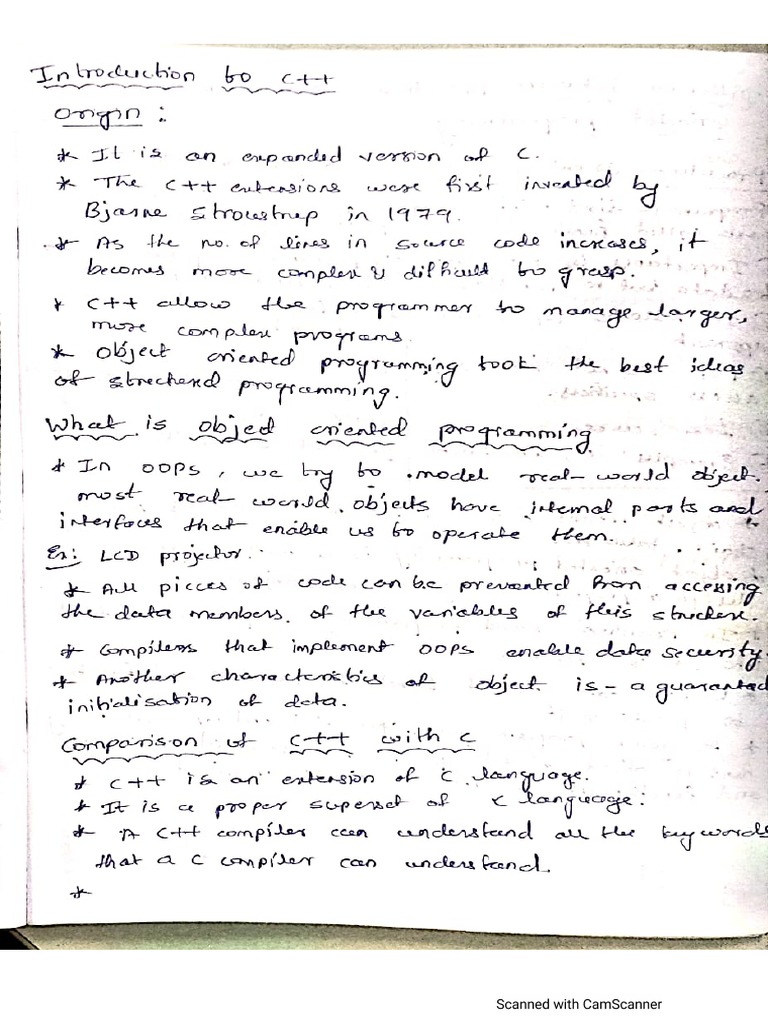 Introduction to C++
Origin :
* It is an expanded version of C.
* The C++ extensions were first invented by
Bjarne Stroustrup in 1979.
* As the no. of lines in source code increases, it
becomes more complex & difficult to grasp.
* C++ allow the programmer to manage larger,
more complex programs.
* Object oriented programming took the best ideas
of structured programming.
What is object oriented programming
* In OOPS, we try to model real-world object.
most real world objects have internal parts and
interfaces that enable us to operate them.
Ex: LCD projector.
* All pieces of code can be prevented from accessing
the data members of the variables of this structure.
* Compilers that implement OOPS enable data security.
* Another characteristics of object is - a guaranted
initialisation of data.
Comparison of C++ with C
* C++ is an extension of C language.
* It is a proper superset of C language.
* A C++ compiler can understand all the keywords
that a C compiler can understand.
*
Scanned with CamScanner